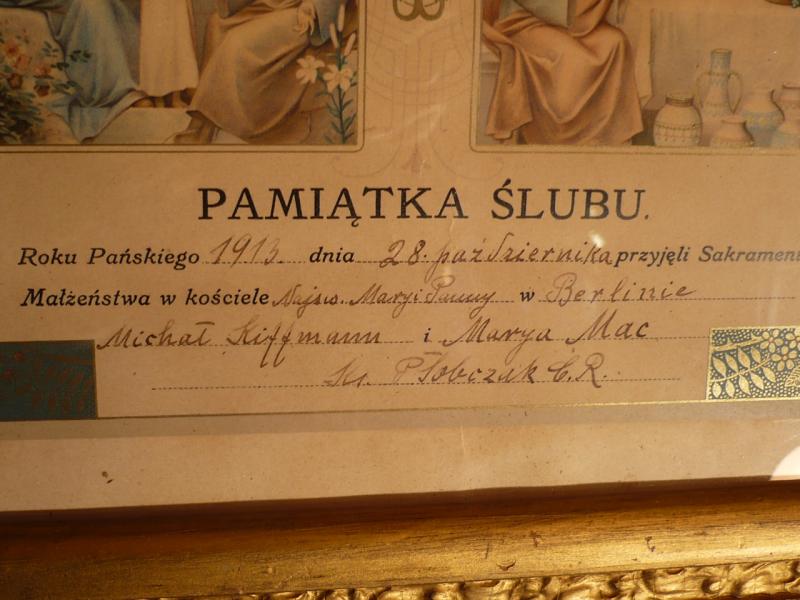 PAMIĄTKA ŚLUBU.
Roku Pańskiego 1913. dnia 28. października przyjęli Sakrament
Małżeństwa w kościele Najsw. Maryi Panny w Berlinie
Michał Kiffmann i Marya Mac
Ks. Płobczak C.R.